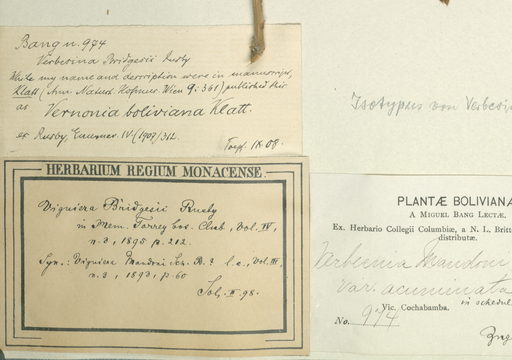 Bang n. 974
Verbesina Bridgesii Rusby
While my name and description were in manuscript,
Klatt (Ann. Naturh. Hofmus. Wien 9: 361) published this
as Vernonia boliviana Klatt.
ex Rusby, Enumer. IV. (1907) 312.
IX. 08.
HERBARIUM REGIUM MONACENSE.
Viguiera Bridgesii Rusby
in Mem. Torrey bot. Club, Vol. IV,
n. 3, 1895 p. 212.
Syn.: Viguiera Mandoni Sch. B.? l. c., Vol. III,
n. 3, 1893, p. 60
II. 98.
Isotypus von Verbesin
PLANTÆ BOLIVIANA
A MIGUEL BANG LECTÆ.
Ex. Herbario Collegii Columbiæ, a N. L. Britt
distributæ.
Verbesina Mandoni
var. acuminata
in schedul
Vic. Cochabamba.
No. 974